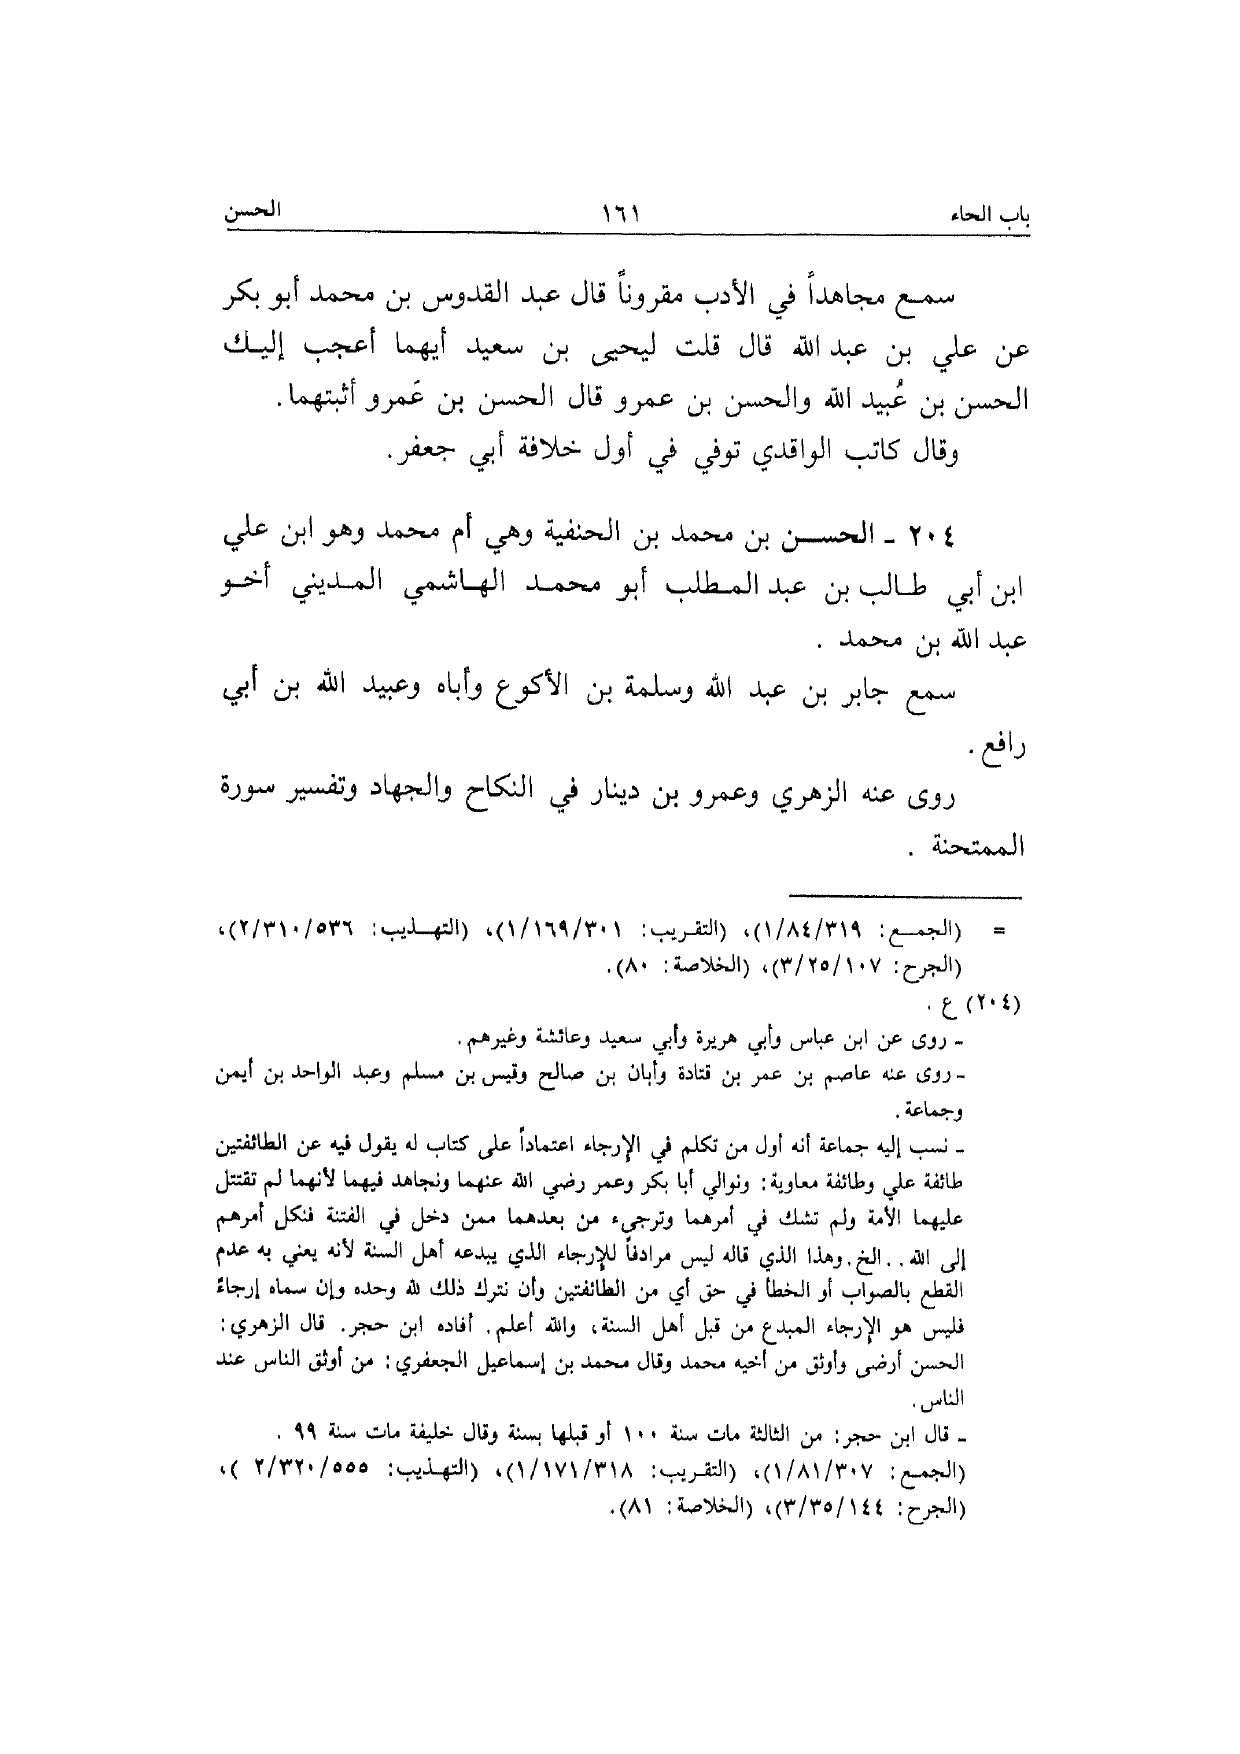 باب الحاء ١٦١ الحسن
سمع مجاهداً في الأدب مقروناً قال عبد القدوس بن محمد أبو بكر
عن علي بن عبد الله قال قلت ليحيى بن سعيد أيهما أعجب إليك
الحسن بن عُبيد الله والحسن بن عمرو قال الحسن بن عَمرو أثبتهما.
وقال كاتب الواقدي توفي في أول خلافة أبي جعفر.
٢٠٤ ـ الحسن بن محمد بن الحنفية وهي أم محمد وهو ابن علي
ابن أبي طالب بن عبد المطلب أبو محمد الهاشمي المديني أخو
عبد الله بن محمد .
سمع جابر بن عبد الله وسلمة بن الأكوع وأباه وعبيد الله بن أبي
رافع.
روى عنه الزهري وعمرو بن دينار في النكاح والجهاد وتفسير سورة
الممتحنة .
= (الجمع: ١/٨٤/٣١٩)، (التقريب: ١/١٦٩/٣٠١)، (التهذيب: ٢/٣١٠/٥٣٦)،
(الجرح: ٣/٢٥/١٠٧)، (الخلاصة: ٨٠).
(٢٠٤) ع .
ـ روى عن ابن عباس وأبي هريرة وأبي سعيد وعائشة وغيرهم.
ـ روى عنه عاصم بن عمر بن قتادة وأبان بن صالح وقيس بن مسلم وعبد الواحد بن أيمن
وجماعة.
ـ نسب إليه جماعة أنه أول من تكلم في الإرجاء اعتماداً على كتاب له يقول فيه عن الطائفتين
طائفة علي وطائفة معاوية: ونوالي أبا بكر وعمر رضي الله عنهما ونجاهد فيهما لأنهما لم تقتتل
عليهما الأمة ولم تشك في أمرهما وترجيء من بعدهما ممن دخل في الفتنة فنكل أمرهم
إلى الله .. الخ. وهذا الذي قاله ليس مرادفاً للإرجاء الذي يبدعه أهل السنة لأنه يعني به عدم
القطع بالصواب أو الخطأ في حق أي من الطائفتين وأن نترك ذلك لله وحده وإن سماه إرجاءً
فليس هو الإرجاء المبدع من قبل أهل السنة، والله أعلم. أفاده ابن حجر. قال الزهري:
الحسن أرضى وأوثق من أخيه محمد وقال محمد بن إسماعيل الجعفري: من أوثق الناس عند
الناس.
ـ قال ابن حجر: من الثالثة مات سنة ١٠٠ أو قبلها بسنة وقال خليفة مات سنة ٩٩ .
(الجمع: ١/٨١/٣٠٧)، (التقريب: ١/١٧١/٣١٨)، (التهذيب: ٢/٣٢٠/٥٥٥ )،
(الجرح: ٣/٣٥/١٤٤)، (الخلاصة: ٨١).